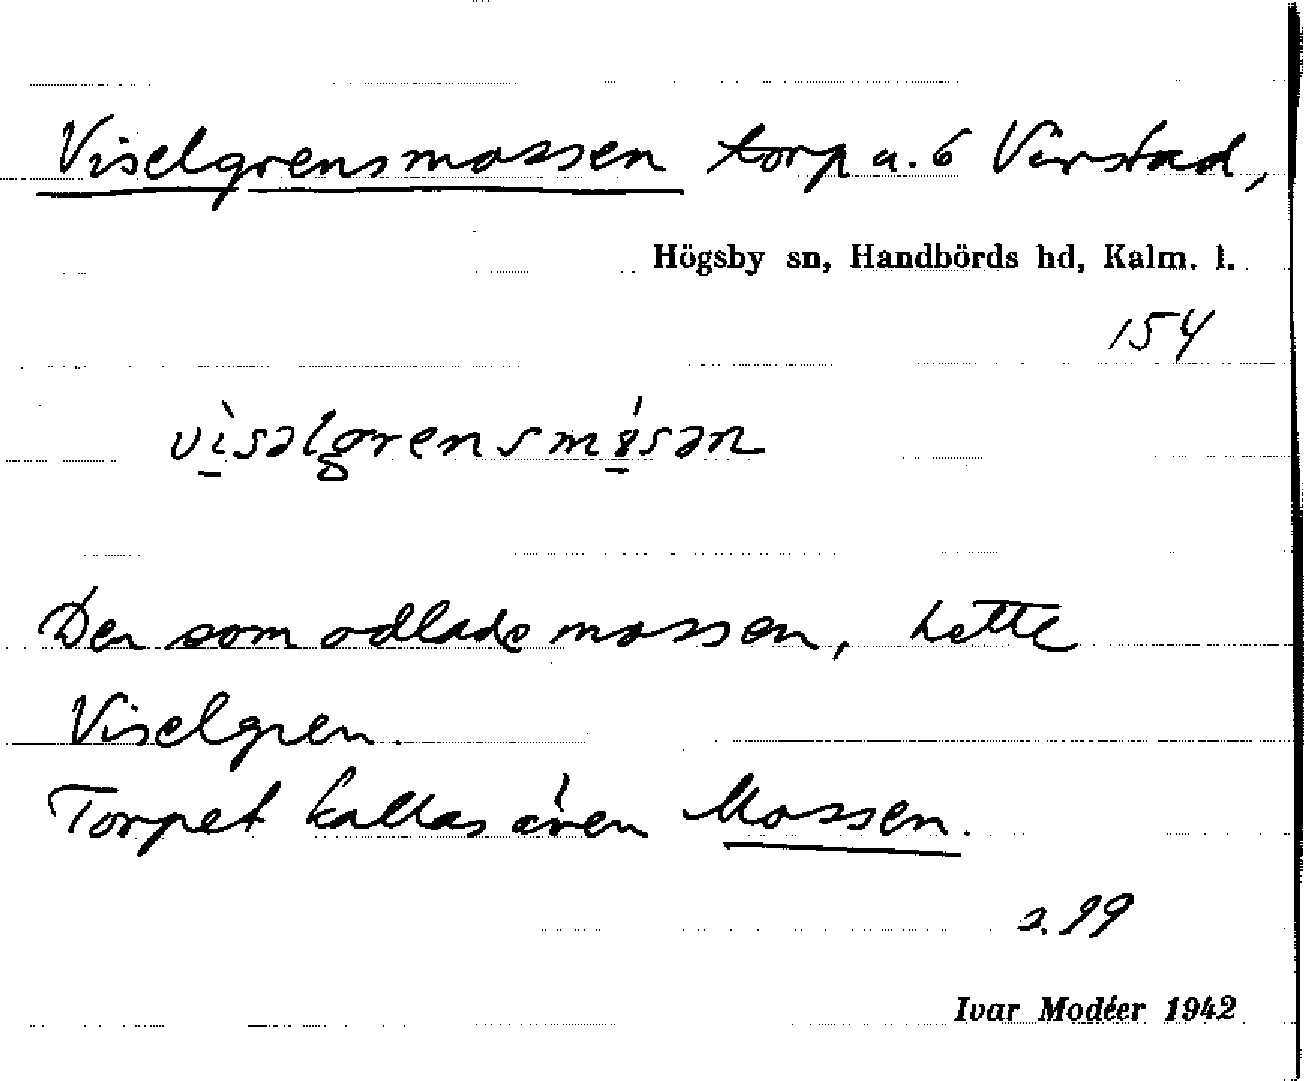 Viselgrensmossen torp u. 6 Värstad,
Högsby sn, Handbörds hd, Kalm. l.
154
Den som odlade mossen, hette
Viselgren.
Torpet kallas även Mossen.
s. 99
Ivar Modéer 1942